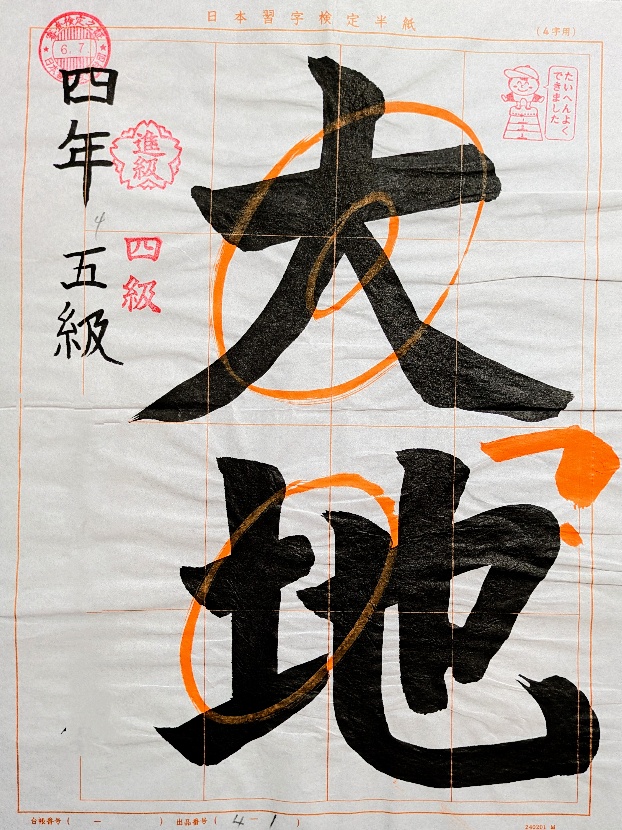 日本習字検定半紙
(4字用)
6.7.
たいへんよく
できました
大地
四年
4
五級
進級
四級
台帳番号( ー )
出品番号( 4-1 )
240201 M